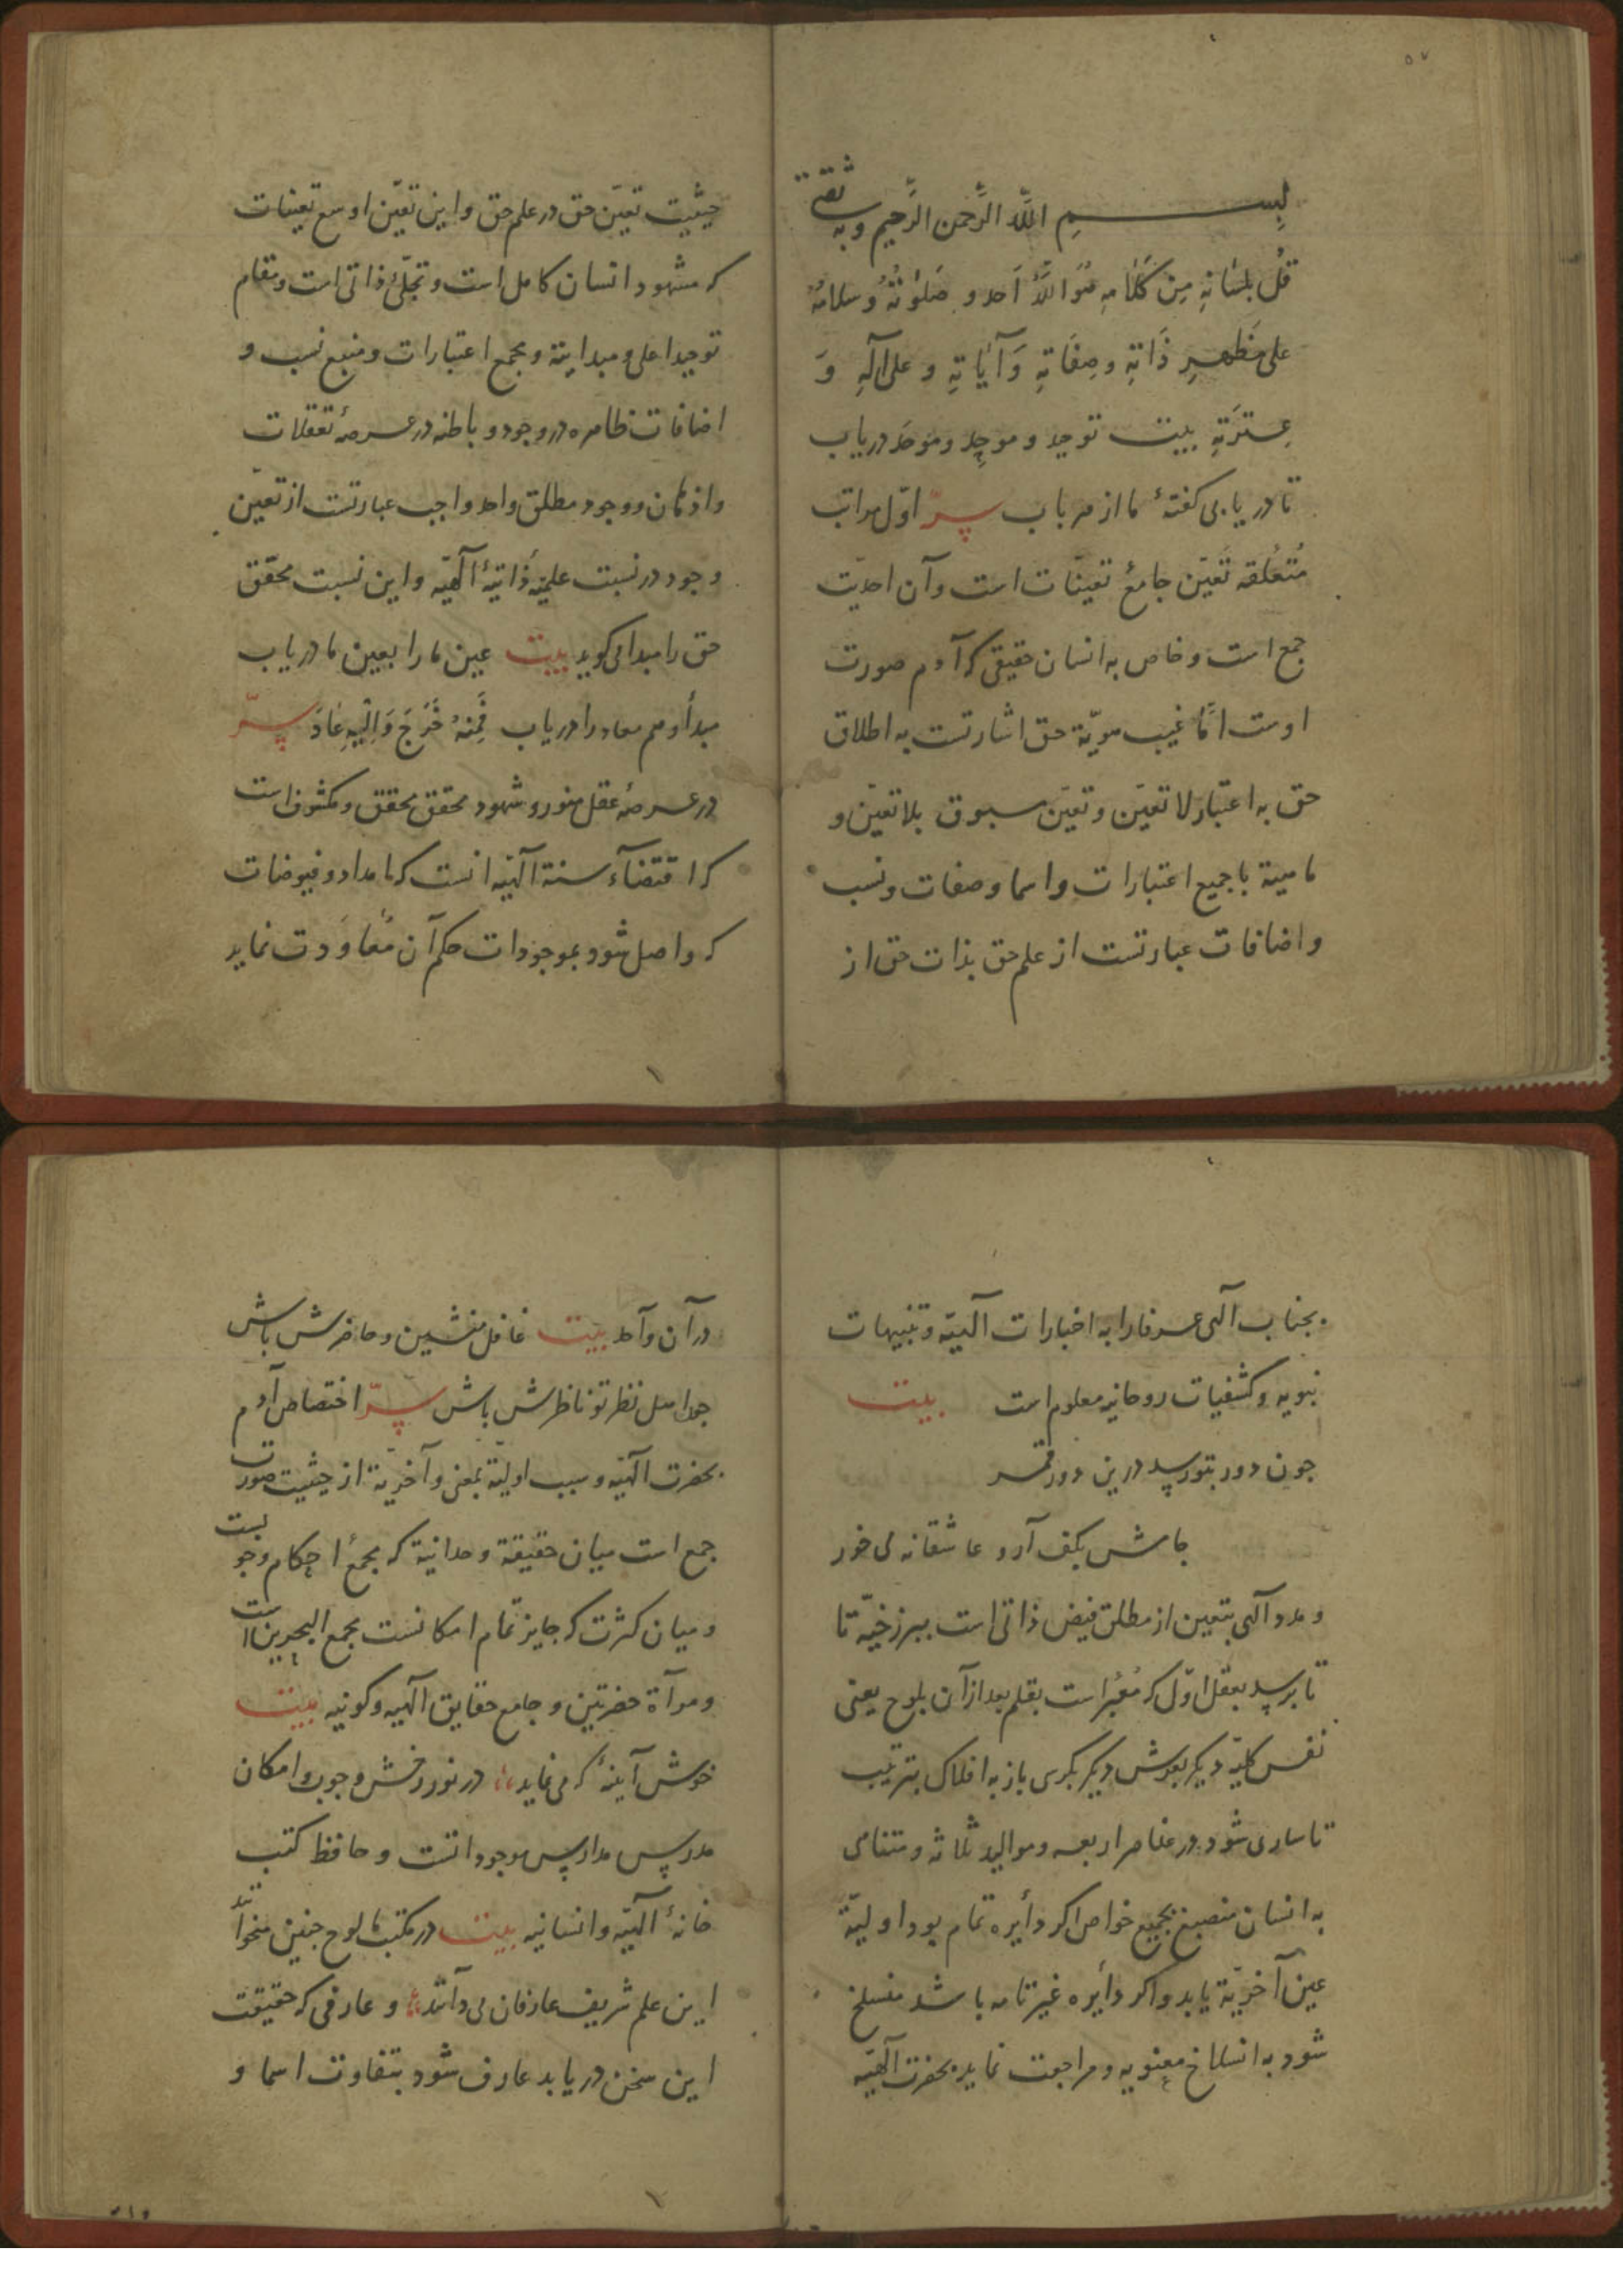 ۵۷
بسم الله الرَّحمن الرَّحیم وبه ثقتی
قُل بلسَانِهِ مِن کَلامِهِ هُوَ اللّٰهُ اَحد و صَلوٰتُهُ وسلامُهُ
علی مَظهرِ ذَاتِهِ وصِفَاتِهِ وَآیَاتِهِ و علی آلِهِ وَ
عِترَتِهِ بیت توحید و موحِد و موحَد دریاب
تا دریابی کفتهٔ ما از هر باب سرّ اوّل مراتب
مُتعَلقه تَعیّن جامعُ تعینّات است وآن احدیّت
جمع است و خاص به انسان حقیقی که آدم صورت
اوست امّا غیب هویّة حق اشارتست به اطلاق
حق به اعتبار لا تعیّن و تعیّن مسبوق بلا تعیّن و
ماهیة با جمیع اعتبارات و اسما و صفات و نسب
و اضافات عبارتست از علم حق بذات حق از
حیثیت تعیّن حق در علم حق و این تعیّن اوسع تعینات
که مشهود انسان کامل است و تجلّی ذاتی است و مقام
توحید اعلی و مبداییة و مجمع اعتبارات و منبع نسب و
اضافات ظاهره در وجود و باطنه در عرصهٔ تعقلات
و اذهان و وجود مطلق واحد واجب عبارتست از تعیّن
وجود در نسبت علمیّهٔ ذاتیهٔ الٓهیّه و این نسبت محقّق
حق را مبدا می کوید بیت عین ما را بعین ما دریاب
مبدأ و هم معاد را دریاب فَمِنهُ خَرَجَ وَاِلَیهِ عَادَ سرّ
در عرصهٔ عقل منور و شهود محقق محقق و مکشوف است
که اقتضآء سنة الٓهیّه انست که امداد و فیوضات
که واصل شود بموجودات حکم آن مُعاوَدت نماید
بجناب الٓهی عرفا را به اخبارات الٓهیّه و تنبیهات
نبویه و کشفیات روحانیه معلوم است بیت
جون دور بتو رسد درین دور قمر
جامش بکف آر و عاشقانه می خور
و مدد الٓهی بتعین از مطلق فیض ذاتی است ببرزخیّه تا
تا برسد بعقل اوّل که مُعبّر است بقلم بعد از آن بلوح یعنی
نفس کلیّه دیکر بعرش دیکر بکرسی باز به افلاک بترتیب
تا ساری شود در عناصر اربعه و موالید ثلاثه و متناهی
به انسان منصبغ بجمیع خواص اکر دأیره تمام بود اولیّة
عین آخریّة یابد و اکر دأیره غیر تامه باشد منسلخ
شود به انسلاخ معنویه و مراجعت نماید بحضرت الٓهیّه
در آن واحد بیت غافل منشین و حاضرش باش
جو اهل نظر تو ناظرش باش سرّ اختصاص آدم
بحضرت الٓهیّه و سبب اولیّة بمعنی و آخریّة از حیثیت صورت
جمع است میان حقیقة وحدانیّة که مجمعُ احکام وجوبست
و میان کثرت که جایز تمام امکانست مجمع البحرین است
و مرآة حضرتین و جامع حقایق الٓهیه و کونیه بیت
خوش آینهٔ که می نماید در نور رخش وجوب و امکان
مدرس مدارس موجوداتست و حافظ کتب
خانهٔ الٓهیّه و انسانیه بیت در مکتب ما لوح جنین میخوانند
این علم شریف عارفان می دانند و عارفی که حقیقت
این سخن دریابد عارف شود بتفاوت اسما و